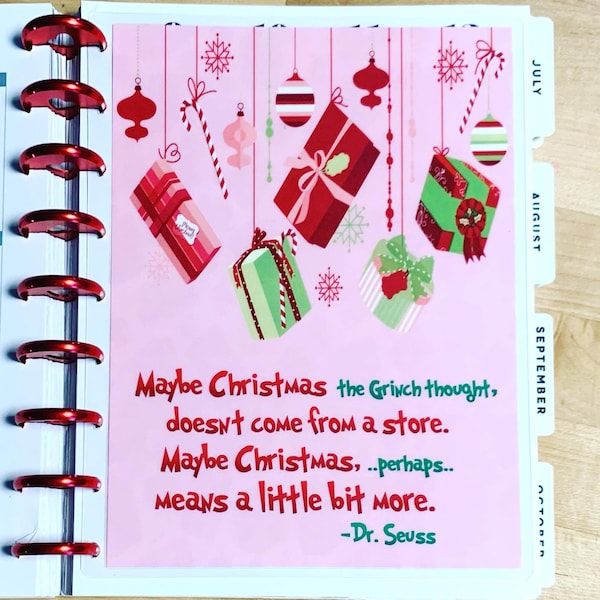 Maybe Christmas the Grinch thought,
doesnt come from a store.
Maybe Christmas, ..perhaps..
means a little bit more.
-Dr. Seuss
JULY
AUGUST
SEPTEMBER
OCTOBER